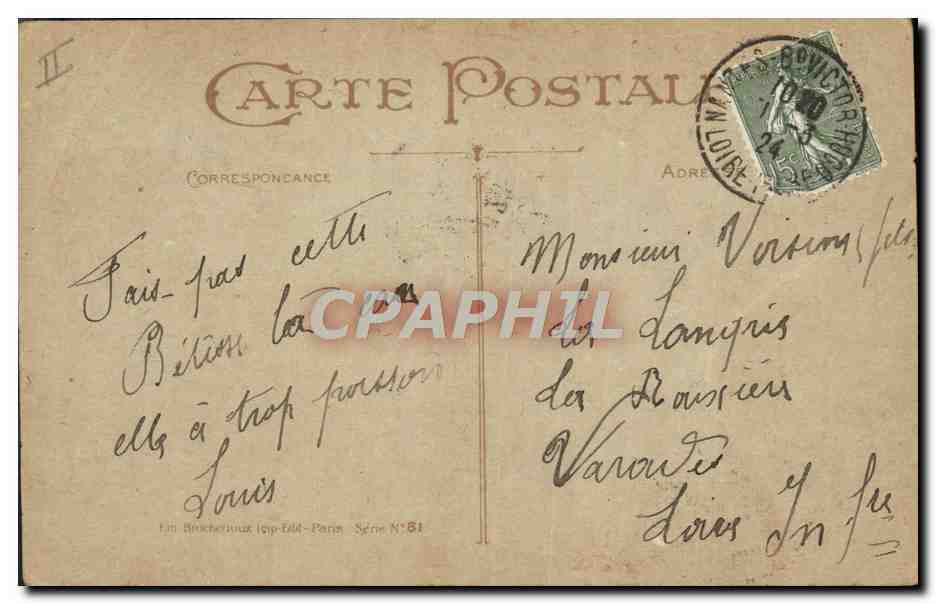 II
CARTE POSTALE
CORRESPONDANCE
ADRE
NANTES-Bd VICTOR HUGO
LOIRE
10
24
15c
Fais-pas cette
Bétise là car
elle à trop poisson
Louis
Monsieur fils
La Langris
La Rouxière
Varades
Loire Infre
CPAPHIL
Em Brocherioux Imp-Edit-Paris Série No 81